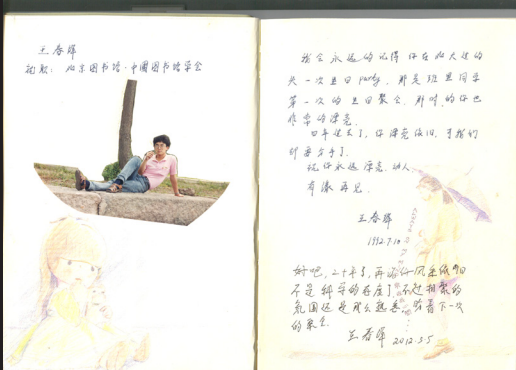 王春晖
初职：北京图书馆·中国图书馆学会
我会永远的记得你在北大过的
头一次生日party，那是班里同学
第一次的生日聚会，那时的你也
非常的漂亮。
四年过去了，你漂亮依旧，可我们
却要分手了。
祝你永远漂亮、动人
有缘再见。
王春晖
1992.7.10
好吧，二十年了，再
不是
氛围还是那么熟悉，盼着下一次
的聚会
王春晖 2012.3.5